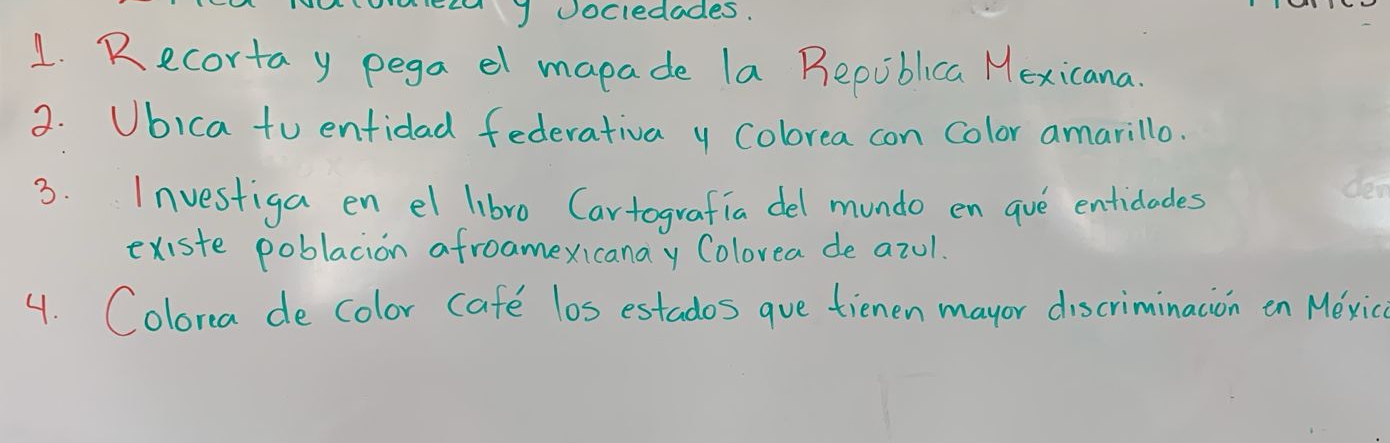 y Sociedades.
1. Recorta y pega el mapa de la República Mexicana.
2. Ubica tu entidad federativa y Colorea con Color amarillo.
3. Investiga en el libro Cartografía del mundo en qué entidades
existe población afroamexicana y Colorea de azul.
4. Colorea de Color café los estados que tienen mayor discriminación en México